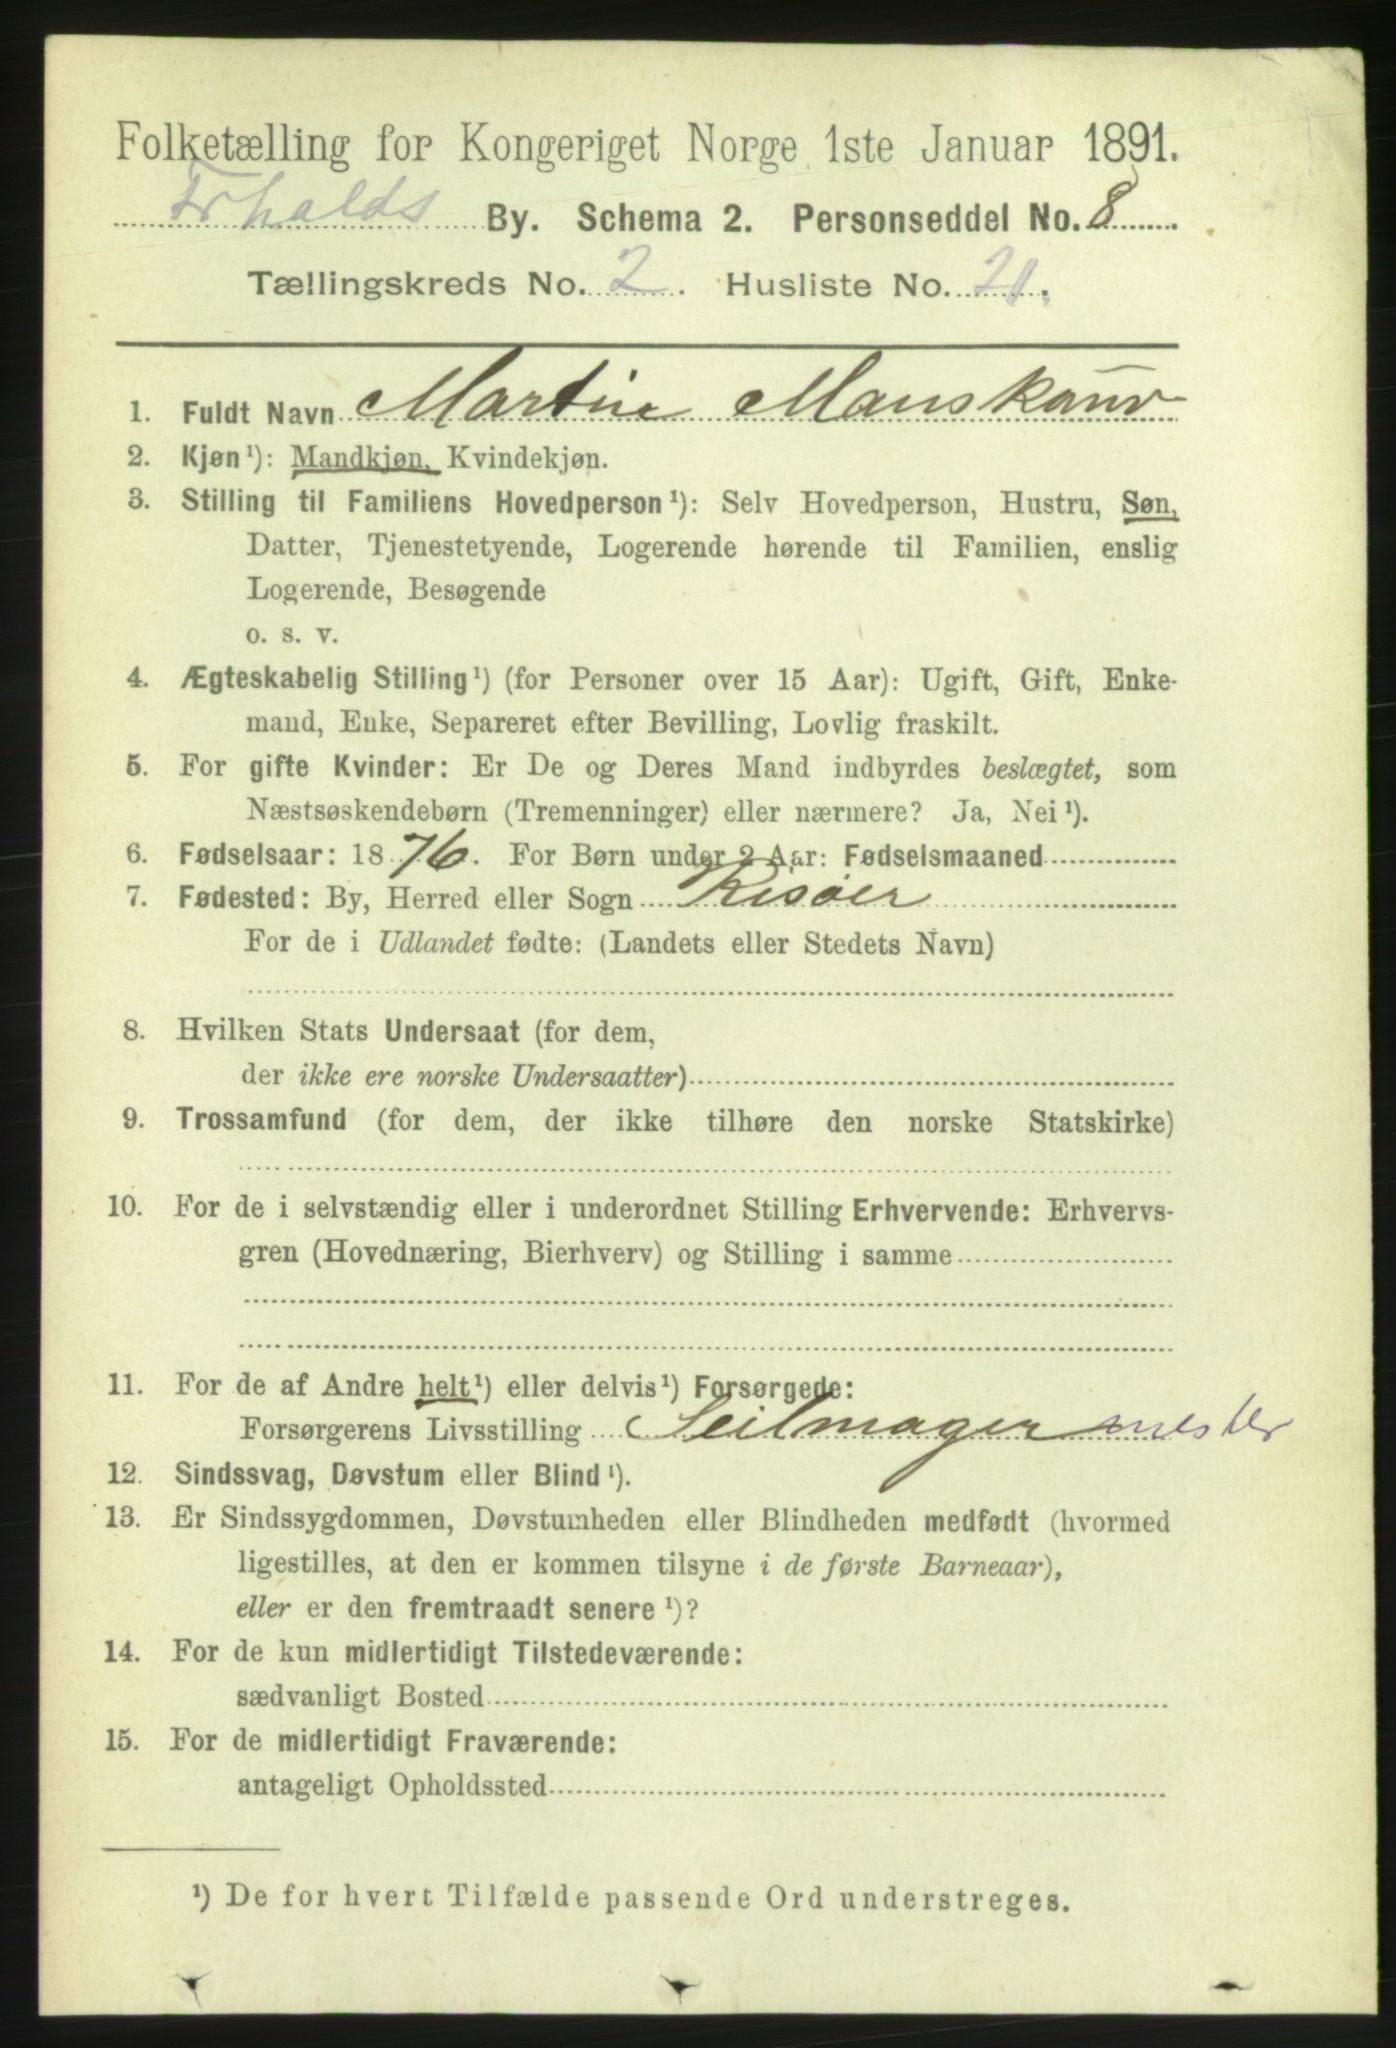 Folketælling for Kongeriget Norge 1ste Januar 1891.
Frhalds By. Schema 2. Personseddel No. 8
Tællingskreds No. 2. Husliste No. 20.
1. Fuldt Navn Martin
2. Kjøn¹): Mandkjøn, Kvindekjøn.
3. Stilling til Familiens Hovedperson¹): Selv Hovedperson, Hustru, Søn,
Datter, Tjenestetyende, Logerende hørende til Familien, enslig
Logerende, Besøgende
o. s. v.
4. Ægteskabelig Stilling¹) (for Personer over 15 Aar): Ugift, Gift, Enke-
mand, Enke, Separeret efter Bevilling, Lovlig fraskilt.
5. For gifte Kvinder: Er De og Deres Mand indbyrdes beslægtet, som
Næstsøskendebørn (Tremenninger) eller nærmere? Ja, Nei¹).
6. Fødselsaar: 1876. For Børn under 2 Aar: Fødselsmaaned
7. Fødested: By, Herred eller Sogn Risøer
For de i Udlandet fødte: (Landets eller Stedets Navn)
8. Hvilken Stats Undersaat (for dem,
der ikke ere norske Undersaatter)
9. Trossamfund (for dem, der ikke tilhøre den norske Statskirke)
10. For de i selvstændig eller i underordnet Stilling Erhvervende: Erhvervs-
gren (Hovednæring, Bierhverv) og Stilling i samme
11. For de af Andre helt¹) eller delvis¹) Forsørgede:
Forsørgerens Livsstilling Seilmager mester
12. Sindssvag, Døvstum eller Blind¹).
13. Er Sindssygdommen, Døvstumheden eller Blindheden medfødt (hvormed
ligestilles, at den er kommen tilsyne i de første Barneaar),
eller er den fremtraadt senere¹)?
14. For de kun midlertidigt Tilstedeværende:
sædvanligt Bosted
15. For de midlertidigt Fraværende:
antageligt Opholdssted
¹) De for hvert Tilfælde passende Ord understreges.